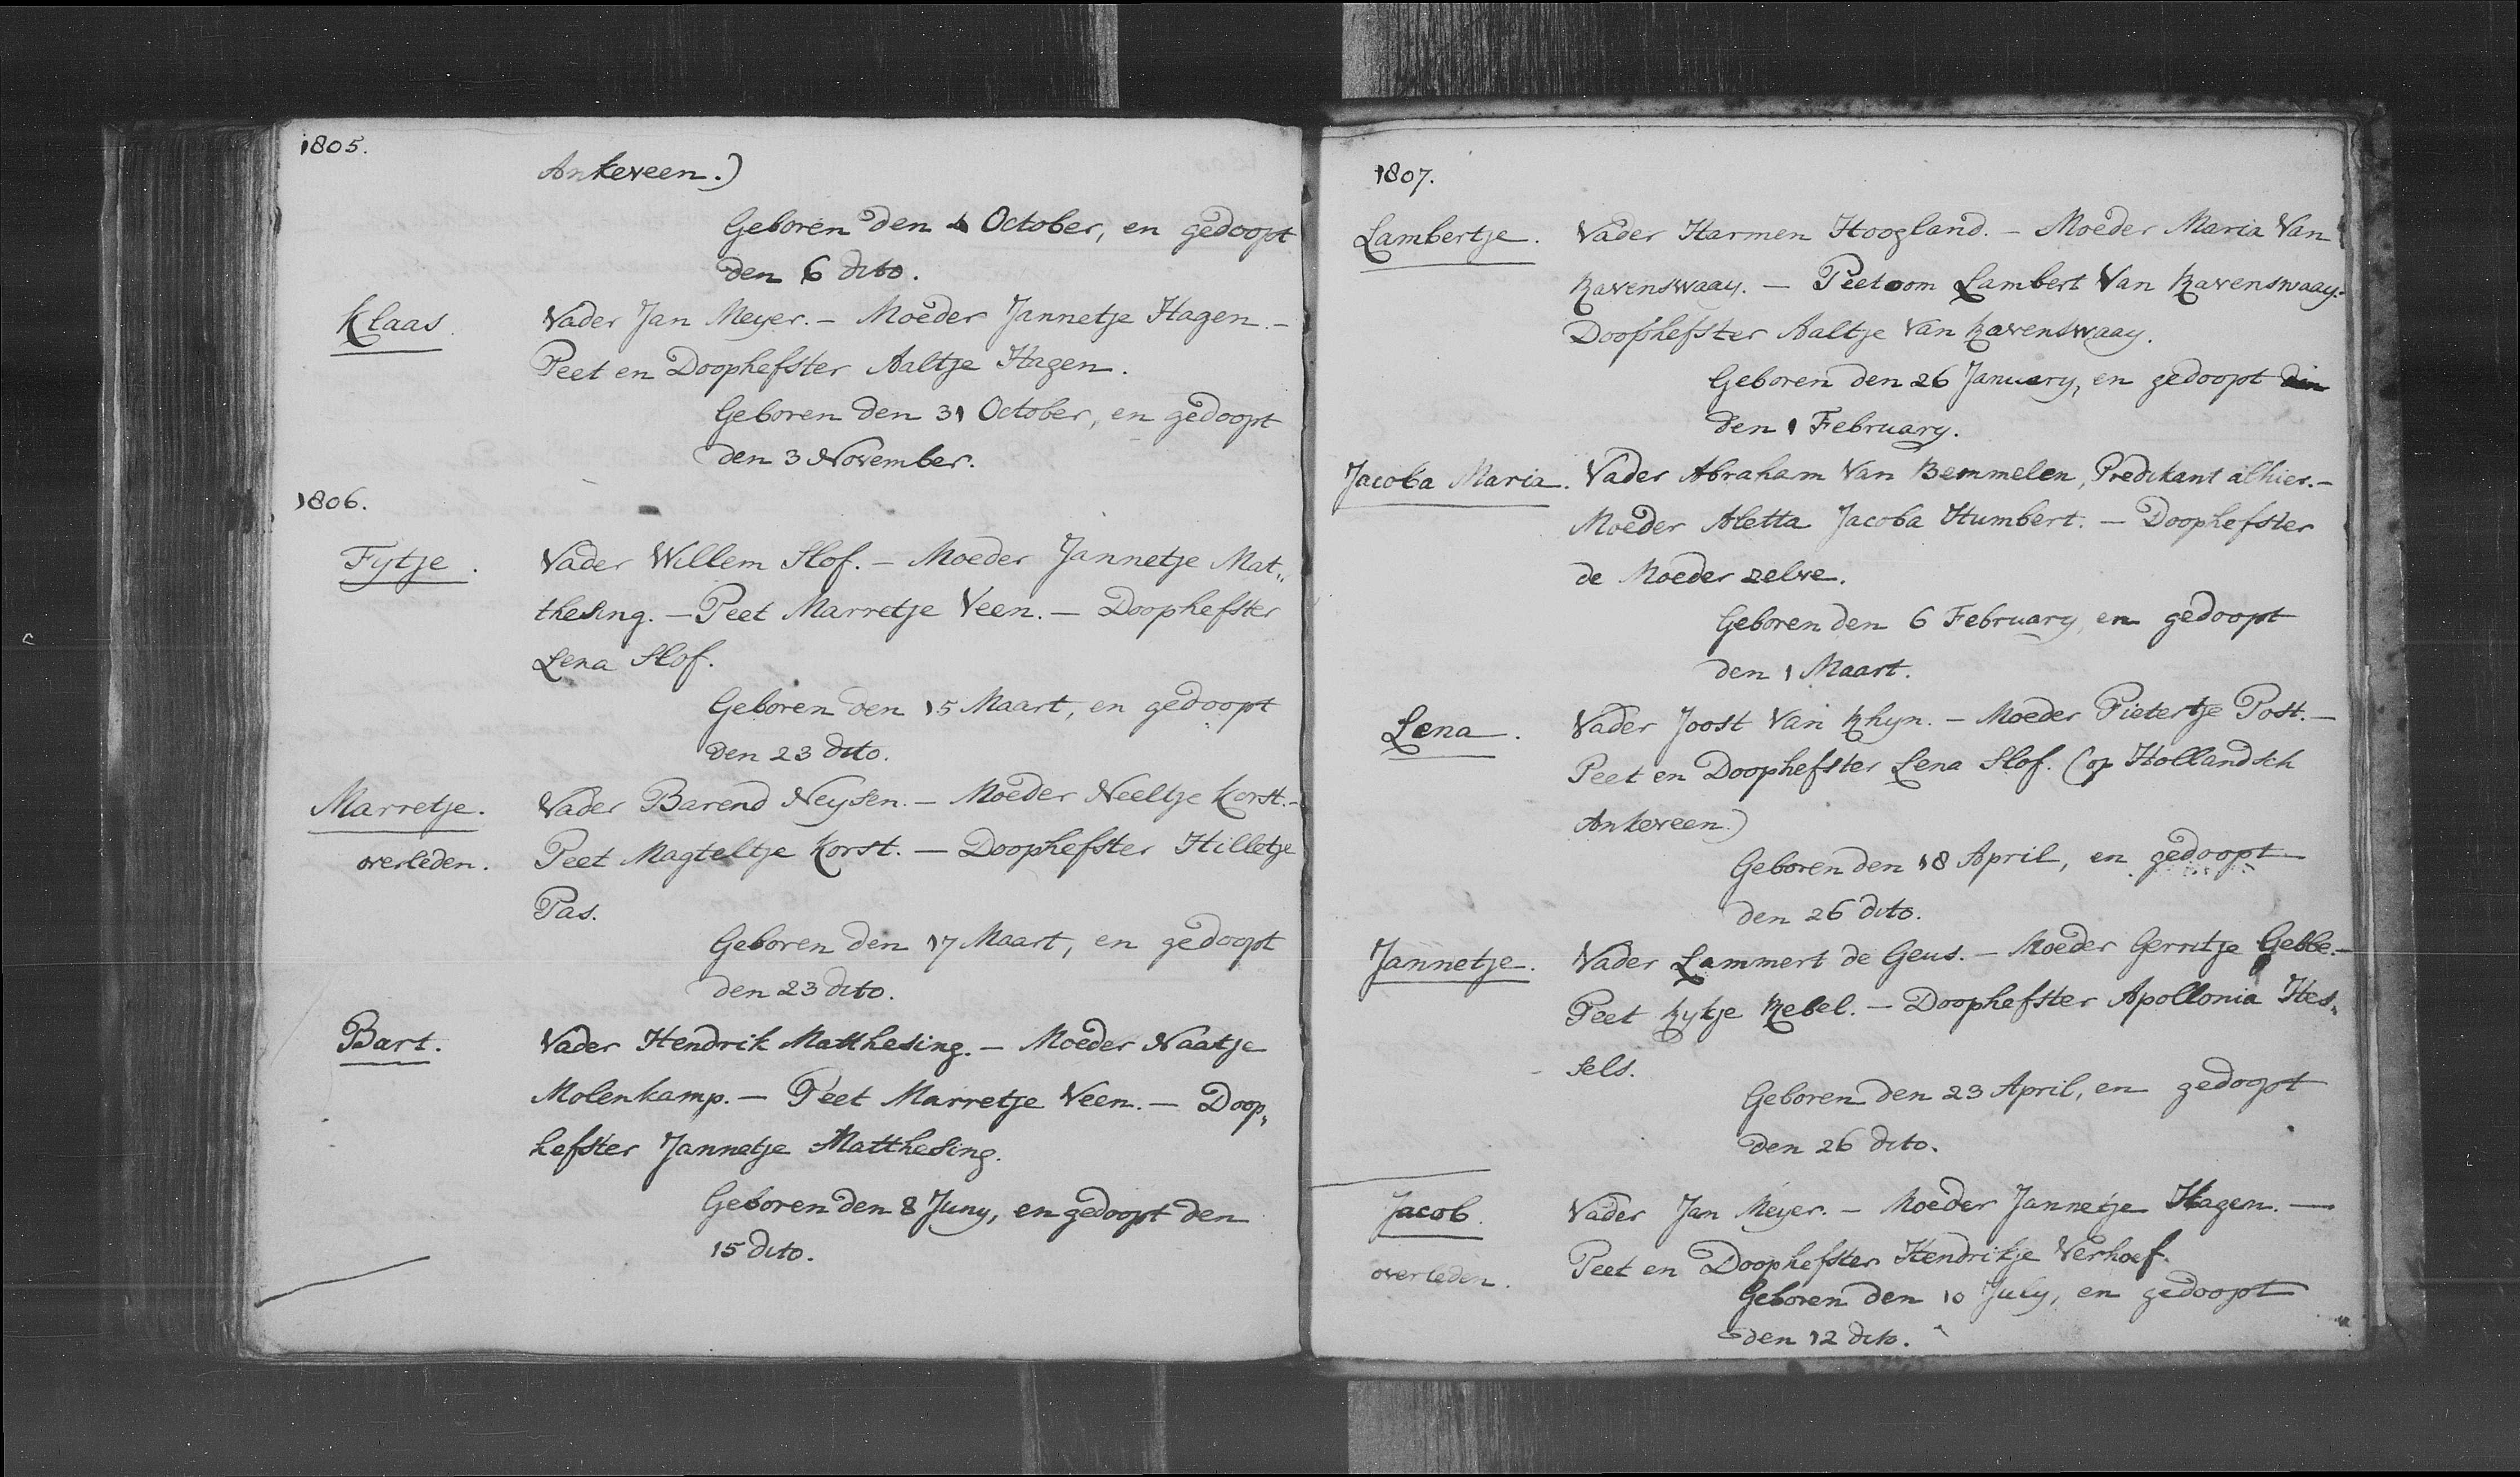 1805.
Ankeveen.)
Geboren den 4 October, en gedoopt
den 6 dito.
Klaas.
Vader Jan Meyer. – Moeder Jannetje Hagen. –
Peet en Doophefster Aaltje Hagen.
Geboren den 31 October, en gedoopt
den 3 November.
1806.
Fijtje.
Vader Willem Slof. – Moeder Jannetje Mat„
thesing. – Peet Marretje Veen. – Doophefster
Lena Slof.
Geboren den 15 Maart, en gedoopt
den 23 dito.
Marretje.
Vader Barend Neysen. – Moeder Neeltje Korst. –
overleden.
Peet Magteltje Korst. – Doophefster Hilletje
Pas.
Geboren den 17 Maart, en gedoopt
den 23 dito.
Bart.
Vader Hendrik Matthesing. – Moeder Naatje
Molenkamp. – Peet Marretje Veen. – Doop„
hefster Jannetje Matthesing.
Geboren den 8 Juny, en gedoopt den
15 dito.
1807.
Lambertje.
Vader Harmen Hoogland. – Moeder Maria Van
Ravenswaay. – Peetoom Lambert Van Ravenswaay. –
Doophefster Aaltje Van Ravenswaay.
Geboren den 26 January, en gedoopt
den 1 February.
Jacoba Maria.
Vader Abraham Van Bemmelen, Predikant alhier. –
Moeder Aletta Jacoba Humbert. – Doophefster
de Moeder zelve.
Geboren den 6 February, en gedoopt
den 1 Maart.
Lena.
Vader Joost Van Rhyn. – Moeder Pietertje Post. –
Peet en Doophefster Lena Slof. (op Hollandsch
Ankeveen.)
Geboren den 18 April, en gedoopt
den 26 dito.
Jannetje.
Vader Lammert de Geus. – Moeder Gerritje Gebbe. –
Peet Rykje Rebel. – Doophefster Apollonia Hes„
sels.
Geboren den 23 April, en gedoopt
den 26 dito.
Jacob.
Vader Jan Meyer. – Moeder Jannetje Hagen. –
overleden.
Peet en Doophefster Hendrikje Verhoef.
Geboren den 10 July, en gedoopt
den 12 dito.